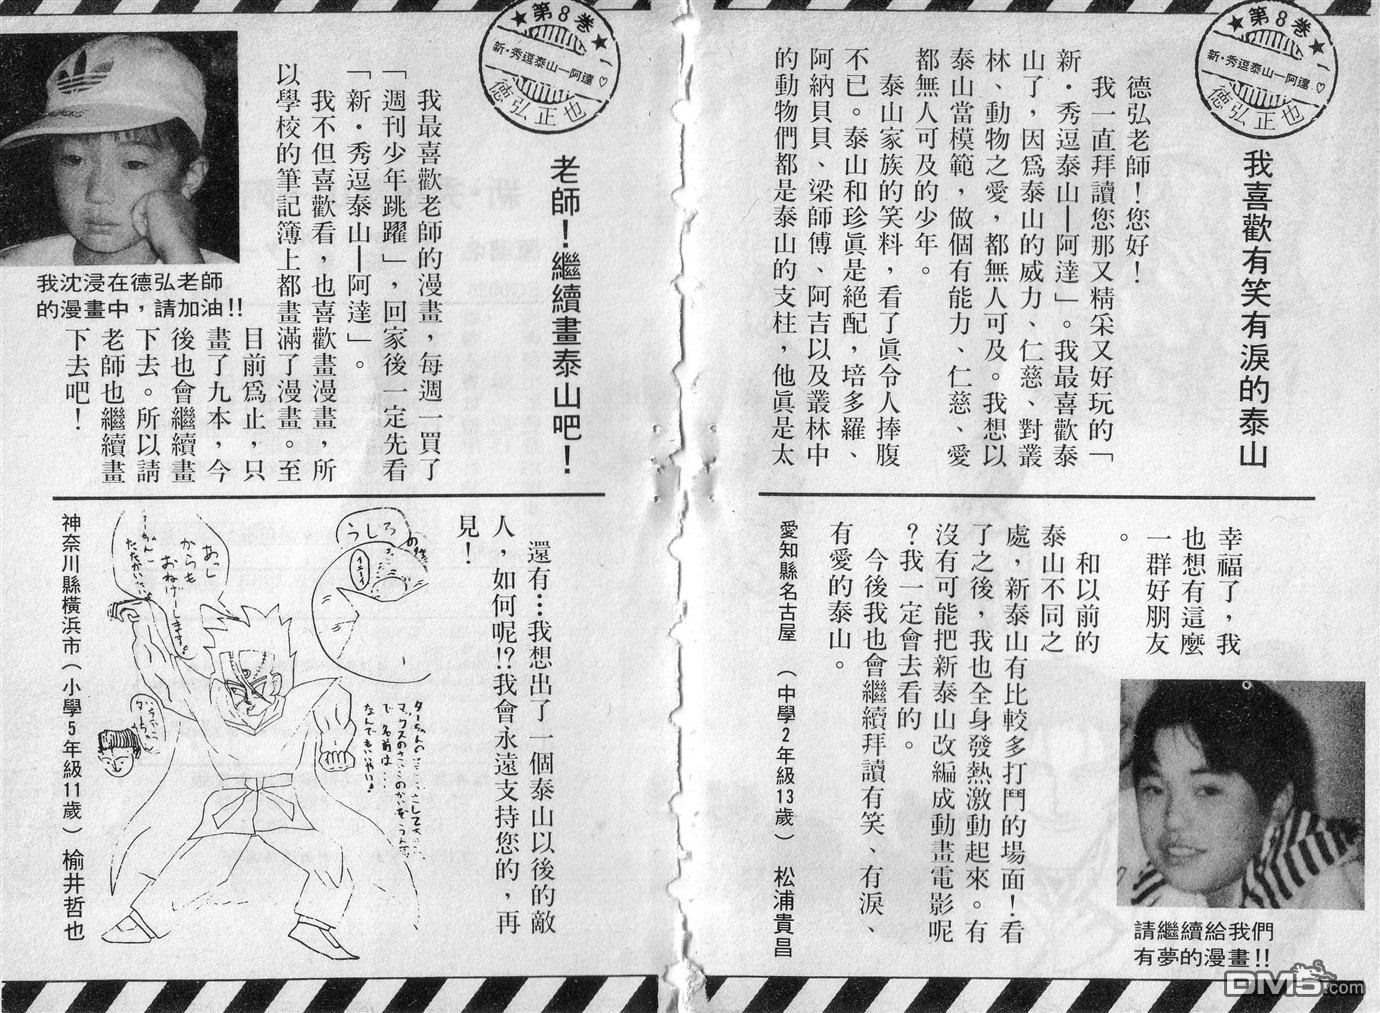 ★第8卷★
新・秀逗泰山—阿達♡
德弘正也
我喜歡有笑有淚的泰山
德弘老師!您好!
我一直拜讀您那又精采又好玩的「
新・秀逗泰山—阿達」。我最喜歡泰
山了，因爲泰山的威力、仁慈、對叢
林、動物之愛，都無人可及。我想以
泰山當模範，做個有能力、仁慈、愛
都無人可及的少年。
泰山家族的笑料，看了眞令人捧腹
不已。泰山和珍眞是絕配，培多羅、
阿納貝貝、梁師傅、阿吉以及叢林中
的動物們都是泰山的支柱，他眞是太
幸福了，我
也想有這麼
一群好朋友
。
和以前的
泰山不同之
處，新泰山有比較多打鬥的場面!看
了之後，我也全身發熱激動起來。有
沒有可能把新泰山改編成動畫電影呢
?我一定會去看的。
今後我也會繼續拜讀有笑、有淚、
有愛的泰山。
愛知縣名古屋 (中學2年級13歲) 松浦貴昌
請繼續給我們
有夢的漫畫!!
★第8卷★
新・秀逗泰山—阿達♡
德弘正也
老師!繼續畫泰山吧!
我最喜歡老師的漫畫，每週一買了
「週刊少年跳躍」，回家後一定先看
「新・秀逗泰山—阿達」。
我不但喜歡看，也喜歡畫漫畫，所
以學校的筆記簿上都畫滿了漫畫。至
目前爲止，只
畫了九本，今
後也會繼續畫
下去。所以請
老師也繼續畫
下去吧!
我沈浸在德弘老師
的漫畫中，請加油!!
還有…我想出了一個泰山以後的敵
人，如何呢!?我會永遠支持您的，再
見!
うしろ
あっし
からも
おねげーします。
なんでもいいやい!
神奈川縣橫浜市 (小學5年級11歲) 榆井哲也
DM5.com